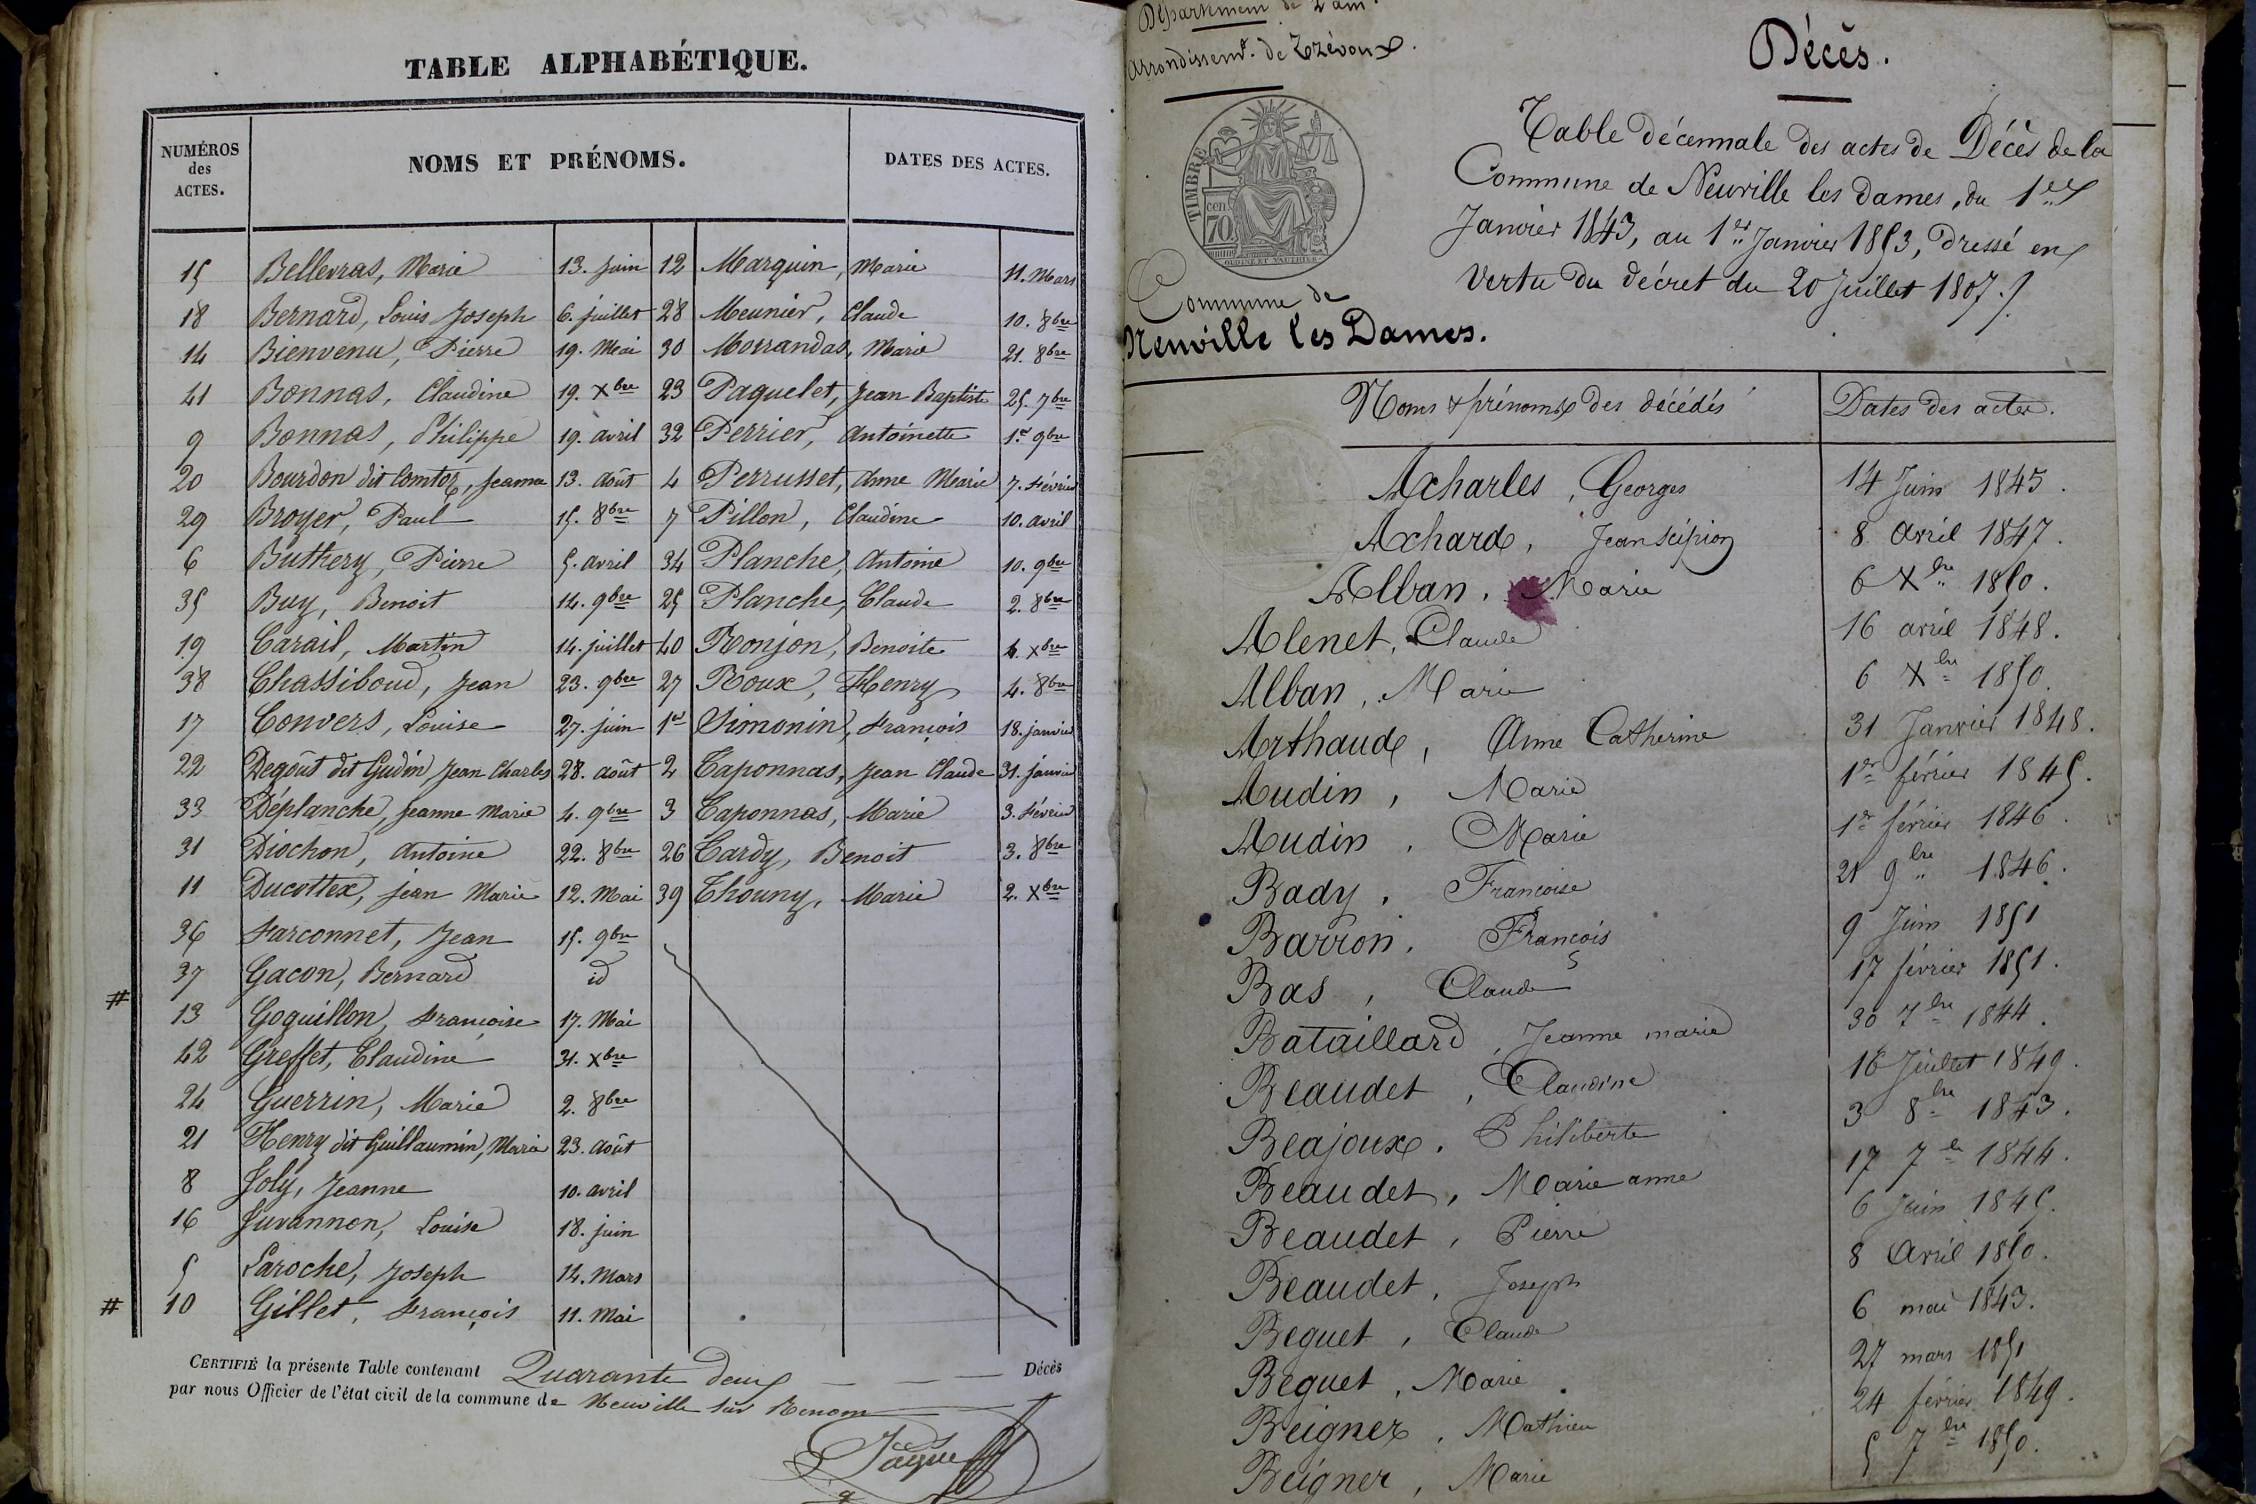 TABLE ALPHABÉTIQUE.
NUMÉROS des ACTES.
NOMS ET PRÉNOMS.
DATES DES ACTES.
15 Bellevras, Marie 13. juin 12 Marquin, Marie 11. Mars
18 Bernard, Louis Joseph 6. juillet 28 Meunier, Claude 10. 8bre
14 Bienvenu, Pierre 19. Mai 30 Morrandas, Marie 21. 8bre
41 Bonnas, Claudine 19. Xbre 23 Paquelet, Jean Baptiste 25. 7bre
9 Bonnas, Philippe 19. avril 32 Perrier, Antoinette 1er 9bre
20 Bourdon dit Comtoz, Jeanne 13. août 4 Perrusset, Anne Marie 7. Février
29 Broyer, Paul 15. 8bre 7 Pillon, Claudine 10. avril
6 Buthery, Pierre 5. avril 34 Planche, Antoine 10. 9bre
35 Buy, Benoit 14. 9bre 25 Planche, Claude 2. 8bre
19 Carail, Martin 14. juillet 40 Ronjon, Benoite 4. Xbre
38 Chassiboud, Jean 23. 9bre 27 Roux, Henry 4. 8bre
17 Convers, Louise 27. juin 1er Simonin, François 18. janvier
22 Degoût dit Gudin, Jean Charles 28. août 2 Taponnas, Jean Claude 31. janvier
33 Déplanche, Jeanne Marie 4. 9bre 3 Taponnas, Marie 3. Février
31 Diochon, Antoine 22. 8bre 26 Tardy, Benoit 3. 8bre
11 Ducottex, jean Marie 12. Mai 39 Thouny, Marie 2. Xbre
36 Farconnet, Jean 15. 9bre
37 Gacon, Bernard id
# 13 Goquillon, Françoise 17. Mai
42 Greffet, Claudine 31. Xbre
24 Guerrin, Marie 2. 8bre
21 Henry dit Guillaumin, Marie 23. août
8 Joly, Jeanne 10. avril
16 Juvannon, Louise 18. juin
5 Laroche, Joseph 14. Mars
# 10 Gillet, François 11. Mai
CERTIFIÉ la présente Table contenant Quarante deux Décès
par nous Officier de l'état civil de la commune de Neuville sur Renom
Département de l'ain.
Arrondissent. de Trévoux.
TIMBRE
70 cent
Commune de
Neuville les Dames.
Décès.
Table décennale des actes de Décès de la
Commune de Neuville les Dames, du 1er
Janvier 1843, au 1er Janvier 1853, dressé en
vertu du décret du 20 Juillet 1807./.
Noms & prénoms des décédés Dates des actes.
Acharles, Georges 14 Juin 1845.
Achard, Jean Scipion 8 Avril 1847.
Alban, Marie 6 Xbre 1850.
Alenet, Claude 16 avril 1848.
Alban, Marie 6 Xbre 1850.
Arthaud, Anne Catherine 31 Janvier 1848.
Audin, Marie 1er février 1845.
Audin, Marie 1er février 1846.
Bady, Françoise 21 9bre 1846.
Barrion, François 9 Juin 1851
Bas, Claude 17 février 1851.
Bataillard, Jeanne marie 30 7bre 1844.
Beaudet, Claudine 16 Juillet 1849.
Beajoux, Philiberte 3 8bre 1843.
Beaudet, Marie anne 17 7bre 1844.
Beaudet, Pierre 6 Juin 1845.
Beaudet, Joseph 8 Avril 1850.
Beguet, Claude 6 mai 1843.
Beguet, Marie 27 mars 1851
Beigner, Mathieu 24 février 1849.
Beigner, Marie 5 7bre 1850.